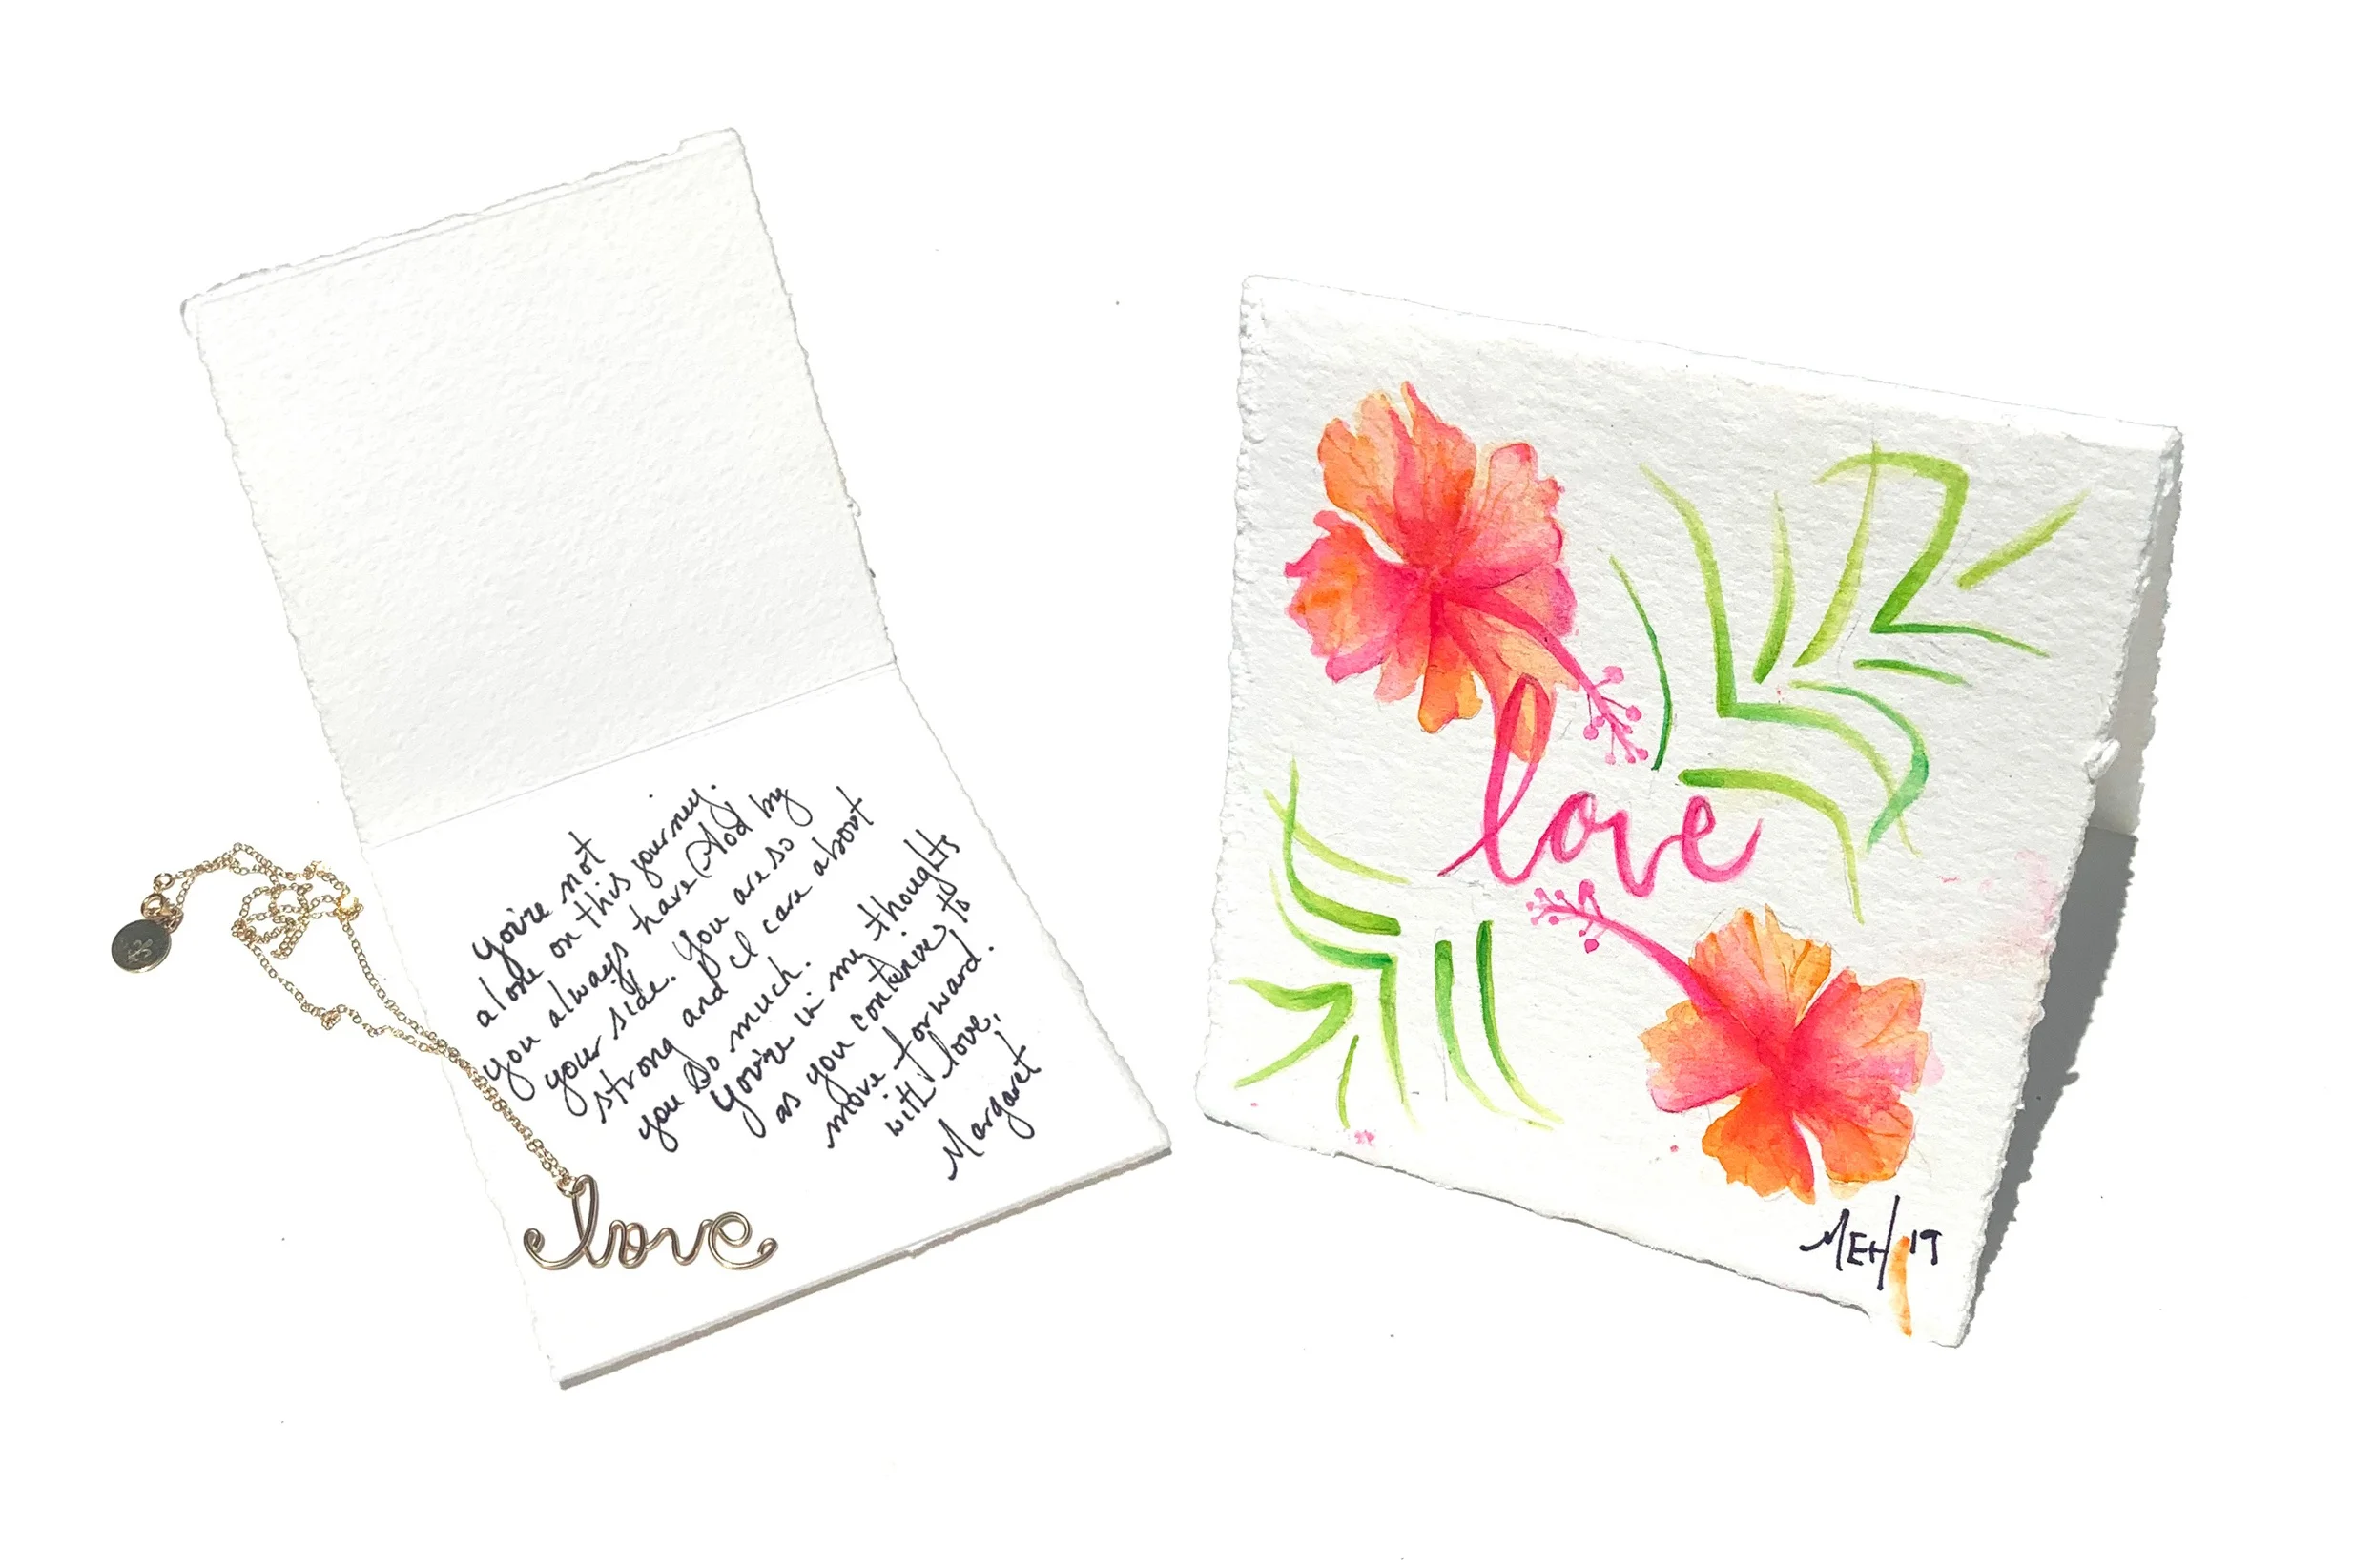 You're not
alone on this journey.
you always have God by
your side. You are so
strong and I care about
you so much.
You're in my thoughts
as you continue to
move forward.
with love,
Margaret
love
love
MEH '19